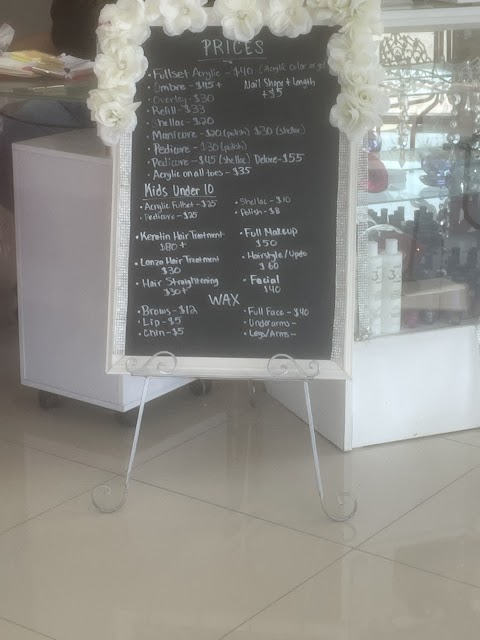 PRICES
• Fullset Acrylic - $40 (Acrylic color or gel
• Ombre - $45+
Nail Shape + Length
+ $5
• Overlay - $30
• Refill - $33
• Shellac - $20
• Manicure - $20 (polish) $30 (shellac)
• Pedicure - $30 (polish)
• Pedicure - $45 (shellac) Deluxe - $55
• Acrylic on all toes - $35
Kids Under 10
• Acrylic Fullset - $25
• Pedicure - $25
• Shellac - $10
• Polish - $8
• Keratin Hair Treatment
$80+
• Lanza Hair Treatment
$30
• Hair Straightening
$30+
• Full Makeup
$50
• Hairstyle / Updo
$60
• Facial
$40
WAX
• Brows - $12
• Lip - $5
• Chin - $5
• Full Face - $40
• Underarms -
• Legs/Arms -